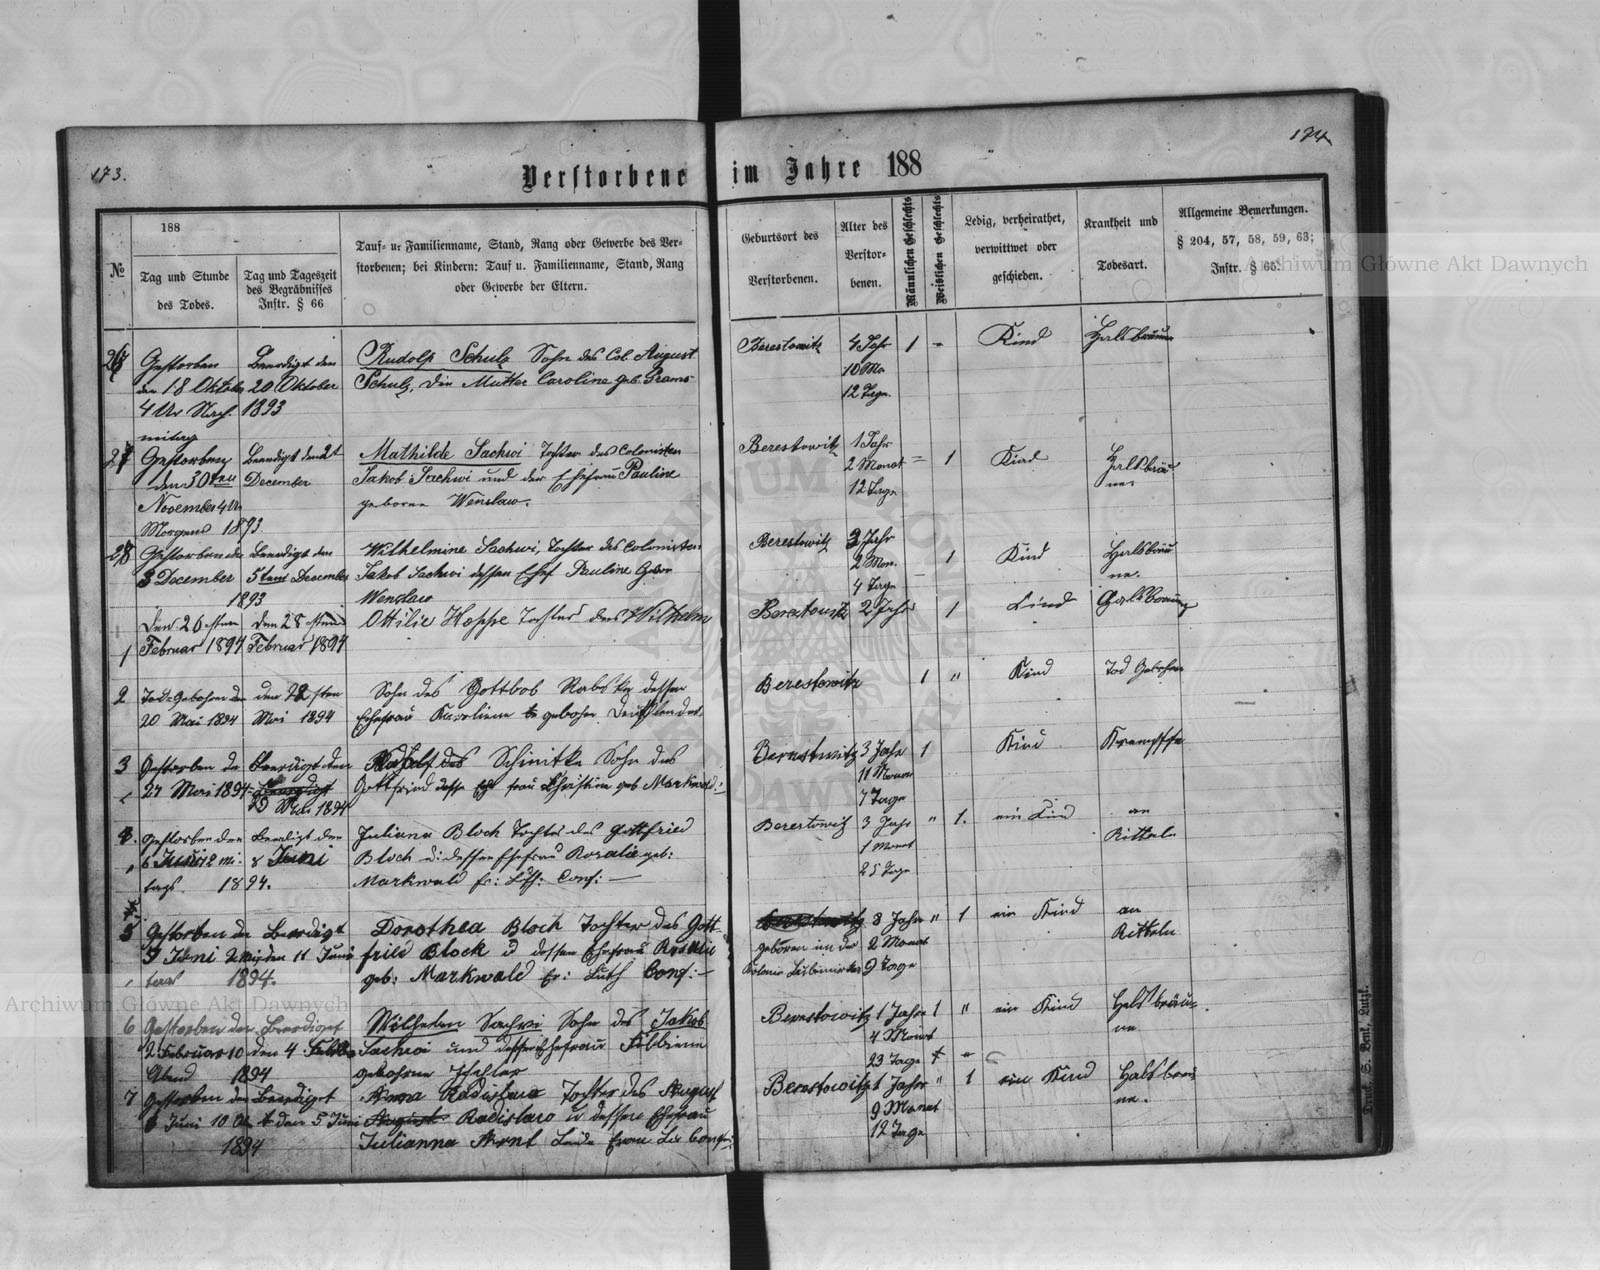 173.
174
Verstorbene im Jahre 188
№
188
Tag und Stunde
des Todes.
Tag und Tageszeit
des Begräbnisses
Instr. § 66
Tauf- u. Familienname, Stand, Rang oder Gewerbe des Ver-
storbenen; bei Kindern: Tauf u. Familienname, Stand, Rang
oder Gewerbe der Eltern.
Geburtsort des
Verstorbenen.
Alter des
Verstor-
benen.
Männlichen Geschlechts
Weiblichen Geschlechts
Ledig, verheirathet,
verwittwet oder
geschieden.
Krankheit und
Todesart.
Allgemeine Bemerkungen.
§ 204, 57, 58, 59, 63;
Instr. § 65.
26
Gestorben
18 Oktober
4 Nach
mitag
Beerdigt den
20 Oktober
1893
Rudolf Schulz Sohn des Col. August
Schulz, die Mutter Caroline geb.
Berestowitz
4 Jahr
10 Mo
12 Tage.
1
Kind
Halsbräune
27
Gestorben
den 30ten
November 4 Ur
Morgens 1893
Beerdigt den 2t
December
Mathilde Sachwi Tochter des Colonisten
Jakob Sachwi und der Ehefrau Pauline
geboren Wenslaw.
Berestowitz
1 Jahr
2 Monat
12 Tage
1
Kind
Halsbräu
ne.
28
Gestorben den
3 December
Beerdigt den
5ten December
1893
Wilhelmine Sachwi, Tochter des Colonisten
Jakob Sachwi dessen Ehef Pauline Gebor
Wenslaw
Berestowitz
3 Jahr
2 Mon.
4 Tage
1
Kind
Halsbräu
ne.
1
Den 26 sten
Februar 1894
Den 28 sten
Februar 1894
Ottilie Hoppe Tochter des Wilhelm
2 Jahr
1
Kind
2
Tod-Gebohren den
20 Mai 1894
den 22 sten
Mai 1894
Sohn des Gottbob dessen
Ehefrau gebohrn
Berestowitz
1 "
Kind
Tod Gebohren
3
Gestorben de
27 Mai 1894
Beerdigt den
Mai 1894
Schmitke Sohn des
Gottfried frau Christine geb Markwald:
Berestowitz
3 Jahr
11 Monat
7 Tage
1
Kind
Krempffe
4.
Gestorben den
6 mi-
tags 1894.
Beerdigt den
8 Juni
Juliana Bloch Tochter des Gottfried
Bloch d: dessen Ehefrau Rosalie geb:
Markwald Conf: —
Berestowitz
3 Jahr
1 Monat
25 Tage
" 1.
ein Kind
an
Ritteln
5
Gestorben de Beerdigt
9 Juni den 11 Juni
1894.
Dorothea Bloch Tochter des Gott-
fried Block d dessen Ehefrau Rosalie
geb: Markwald Ev: Luth Conf: —
Berestowitz
geboren in der
Kolonie
8 Jahr
2 Monat
9 Tage
" 1
ein Kind
an
Ritteln
6
Gestorben den
2 Februar 10
Abend 1894
Beerdiget
den 4 Febr
Wilhelm Sachwi Sohn des Jakob
Sachwi und dessen Ehefrau
gebohrne
Berestowitz
1 Jahr
4 Monat
23 Tage
1 "
ein Kind
Halsbräu-
ne
7
Gestorben den
3 Juni 10
1894
Beerdiget
den 5 Juni
Radislaw Tochter des August
August Radislaw u dessen Ehefrau
Julianna Arnt
Berestowitz
1 Jahr
9 Monat
12 Tage
" 1
ein Kind
Halsbräu
ne.
Druck S. Bent, Lutzk.
Archiwum Główne Akt Dawnych
Archiwum Główne Akt Dawnych